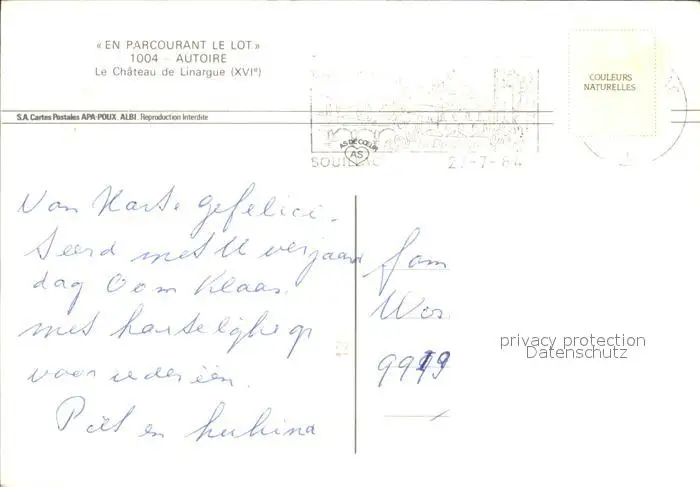 « EN PARCOURANT LE LOT »
1004 - AUTOIRE
Le Château de Linargue (XVIᵉ)
COULEURS
NATURELLES
S.A. Cartes Postales APA-POUX. ALBI. Reproduction Interdite
AS DE CŒUR
AS
SOUILLAC 2 -7-84
Van Harte gefelici-
teerd met U verjaar
dag Oom Klaas.
met hartelijke gr
voor iedereen.
Piet en
Fam
9919
privacy protection
Datenschutz